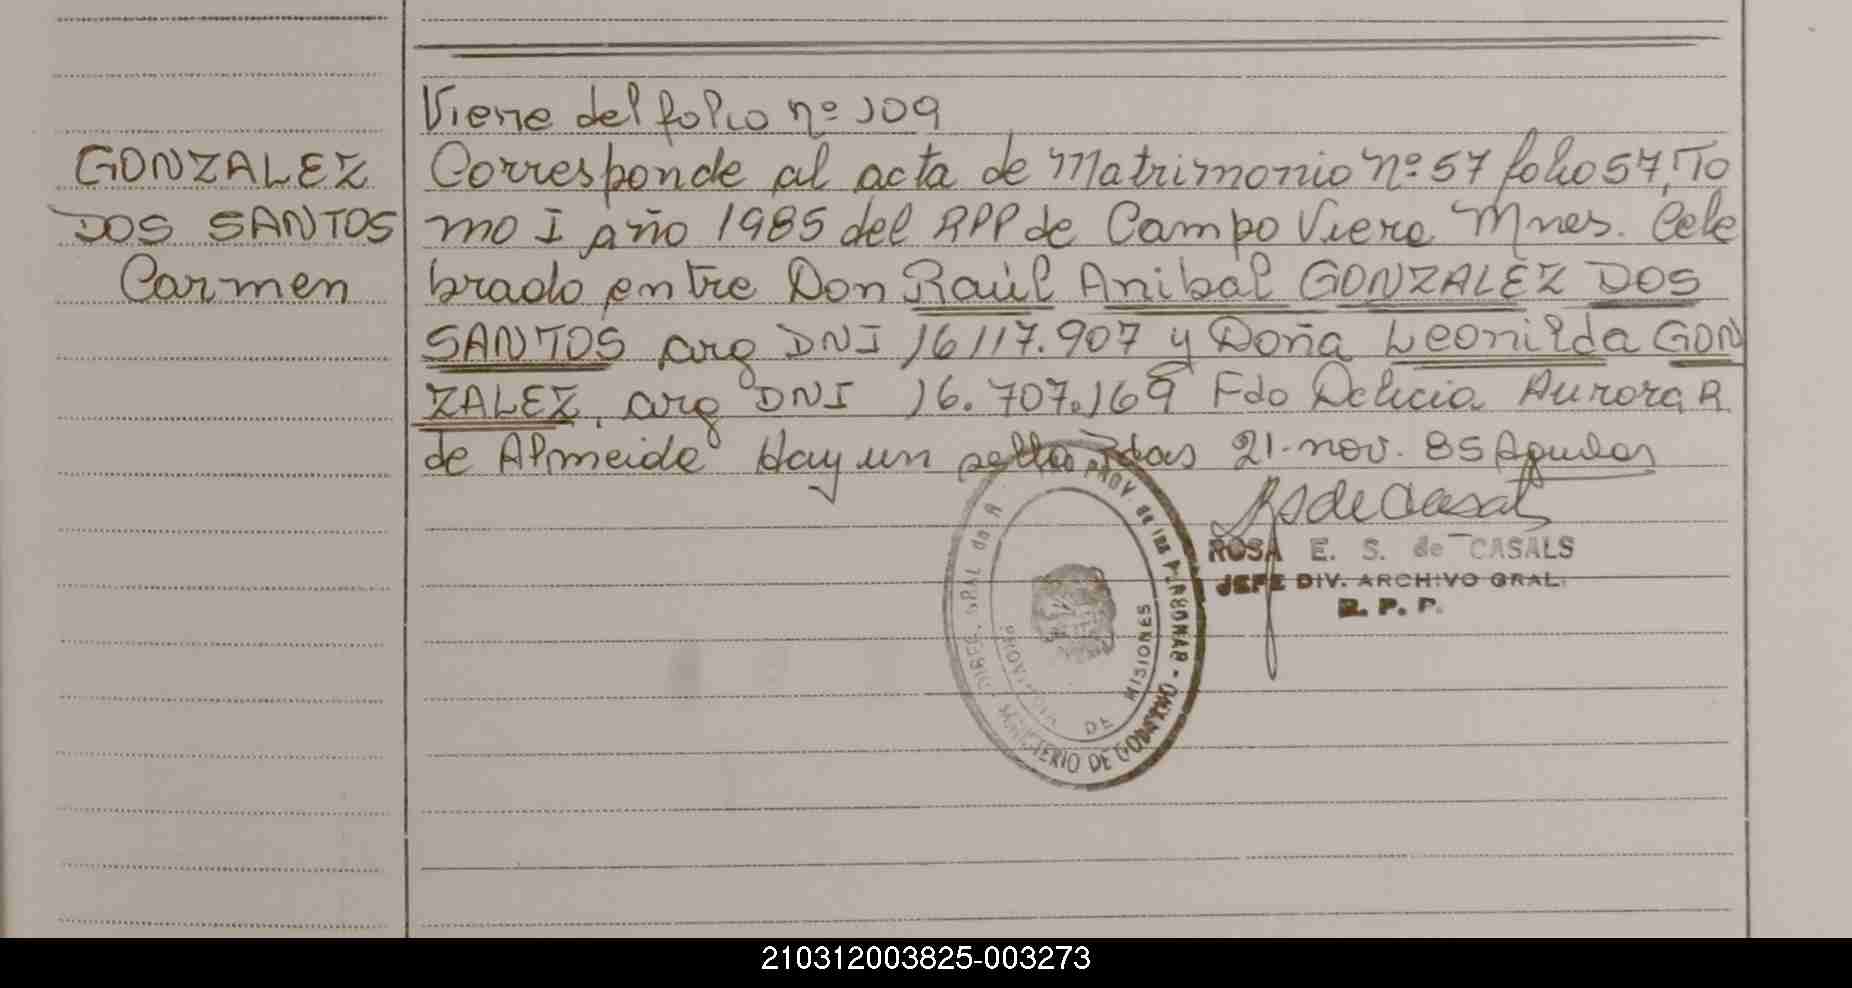 Viene del folio nº 109
GONZALEZ
DOS SANTOS
Carmen
Corresponde al acta de Matrimonio nº 57 folio 57, To
mo I año 1985 del RPP de Campo Viera Mnes. Cele
brado entre Don Raúl Anibal GONZALEZ DOS
SANTOS arg DNI 16117.907 y Doña Leonilda GON
ZALEZ, arg DNI 16.707.169 Fdo Delicia Aurora R
de Almeida Hay un sello Pdas 21-nov. 85
ROSA E. S. de CASALS
JEFE DIV. ARCHIVO GRAL.
R. P. P.
DIREC. GRAL del R. PROV. de las PERSONAS - MINISTERIO DE GOBIERNO
PROVINCIA DE MISIONES
210312003825-003273